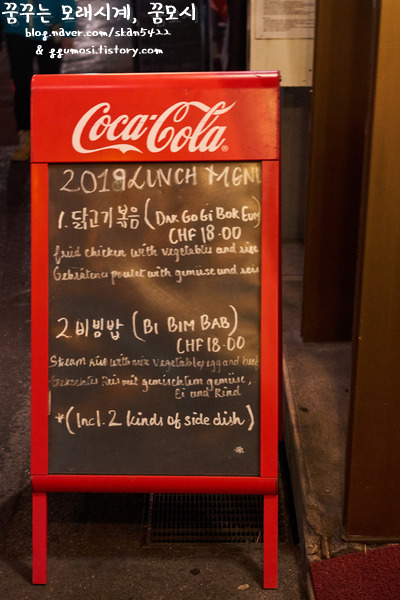 꿈꾸는 모래시계, 꿈모시
blog.naver.com/skan5422
& ggumosi.tistory.com
Coca-Cola
2019 LUNCH MENU
1. 닭고기볶음 (DAK GOGI BOK EUM)
CHF 18.00
fried chicken with vegetables and rice
Gebratenes poulet with gemüse und reis
2. 비빔밥 (BI BIM BAB)
CHF 18.00
Steam rice with mix vegetables, egg and beef
Gekochtes Reis mit gemischtem gemüse,
Ei und Rind
*(Incl. 2 kinds of side dish)